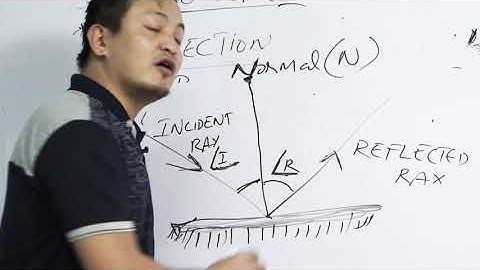 ECTION
Normal (N)
INCIDENT
RAY
∠I
∠R
REFLECTED
RAY